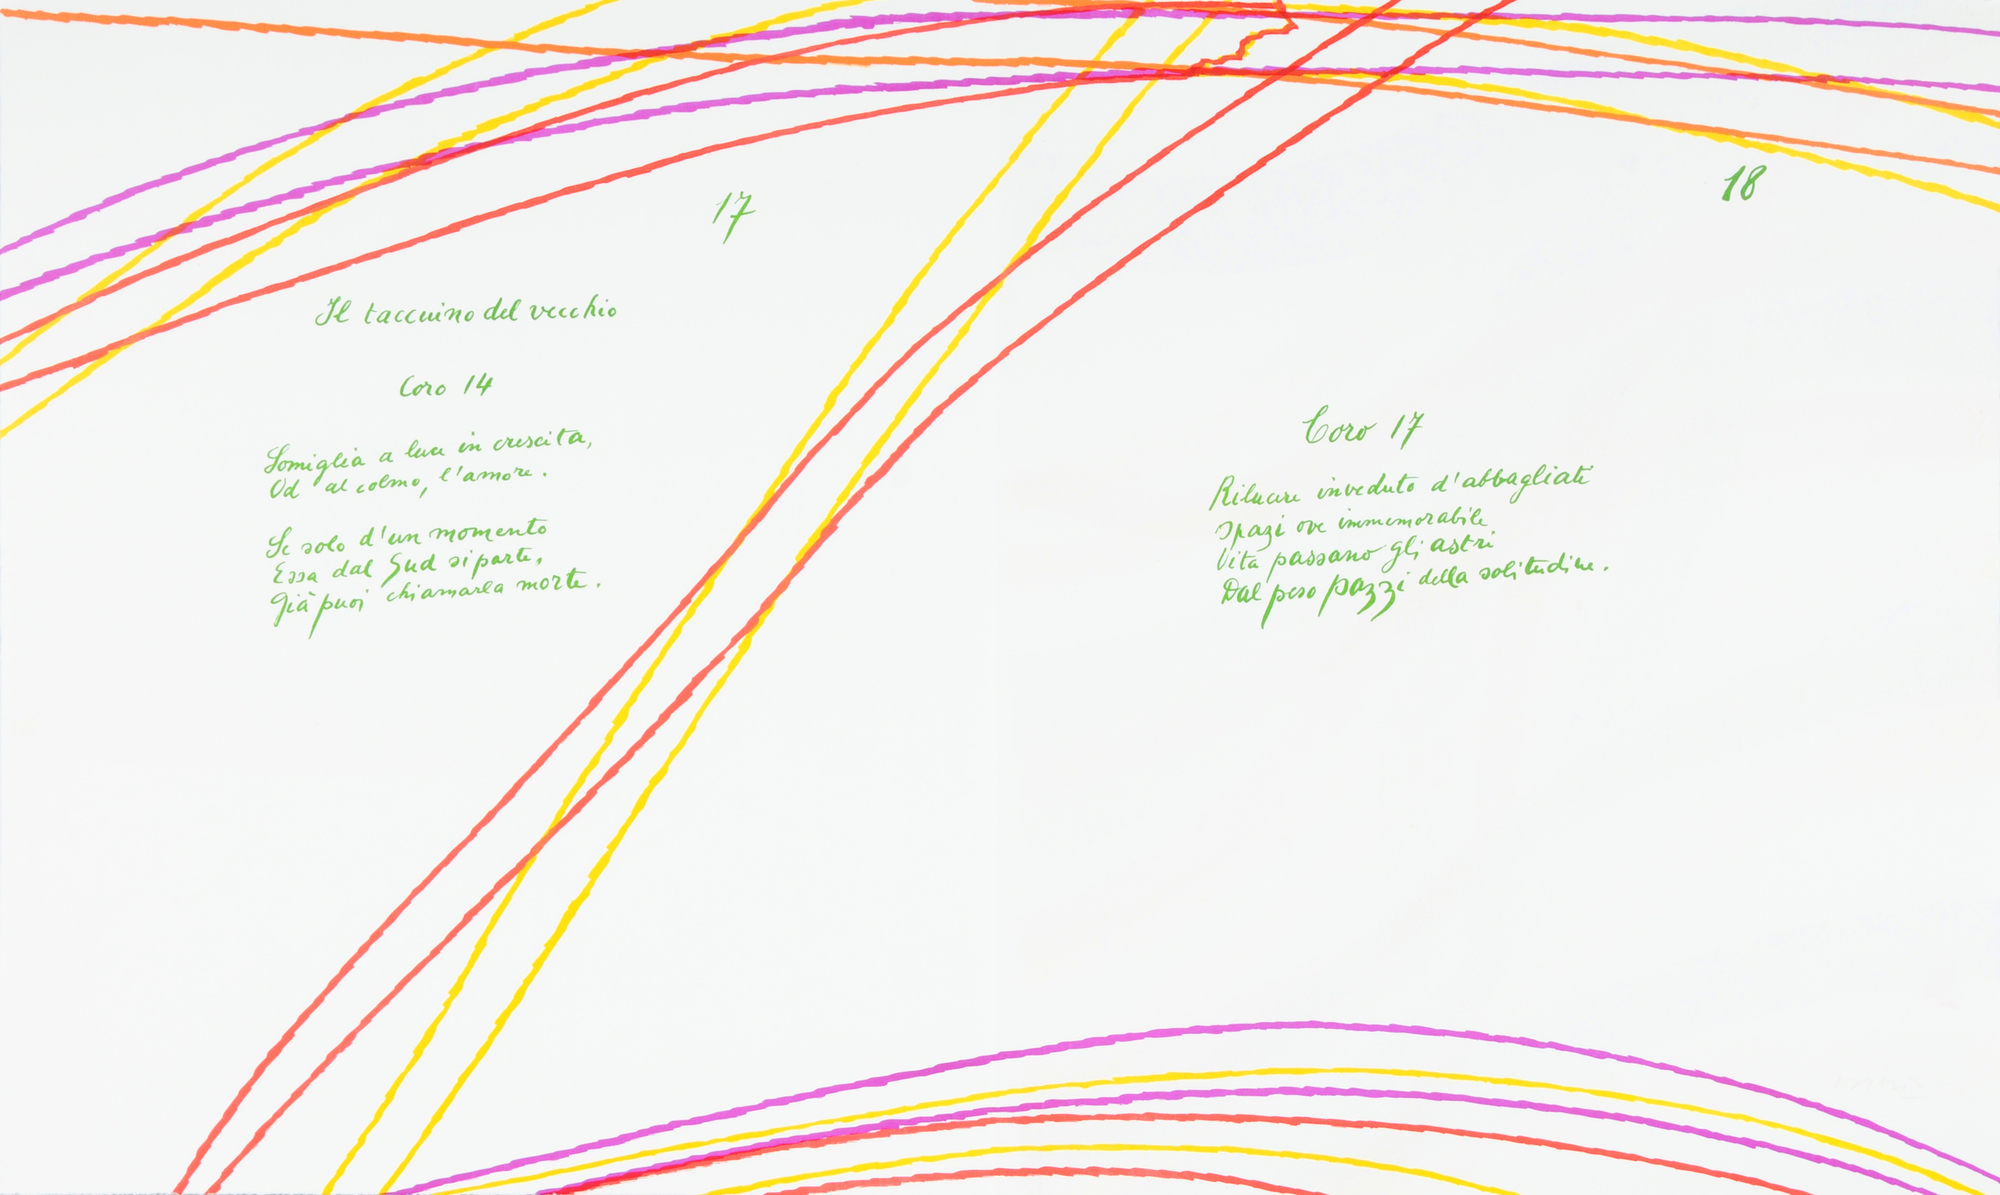 17
Il taccuino del vecchio
Coro 14
Somiglia a luce in crescita,
Od al colmo, l'amore.
Se solo d'un momento
Essa dal Sud si parte,
Già puoi chiamarla morte.
18
Coro 17
Rilucere inveduto d'abbagliati
Spazi ove immemorabile
Vita passano gli astri
Dal peso pazzi della solitudine.